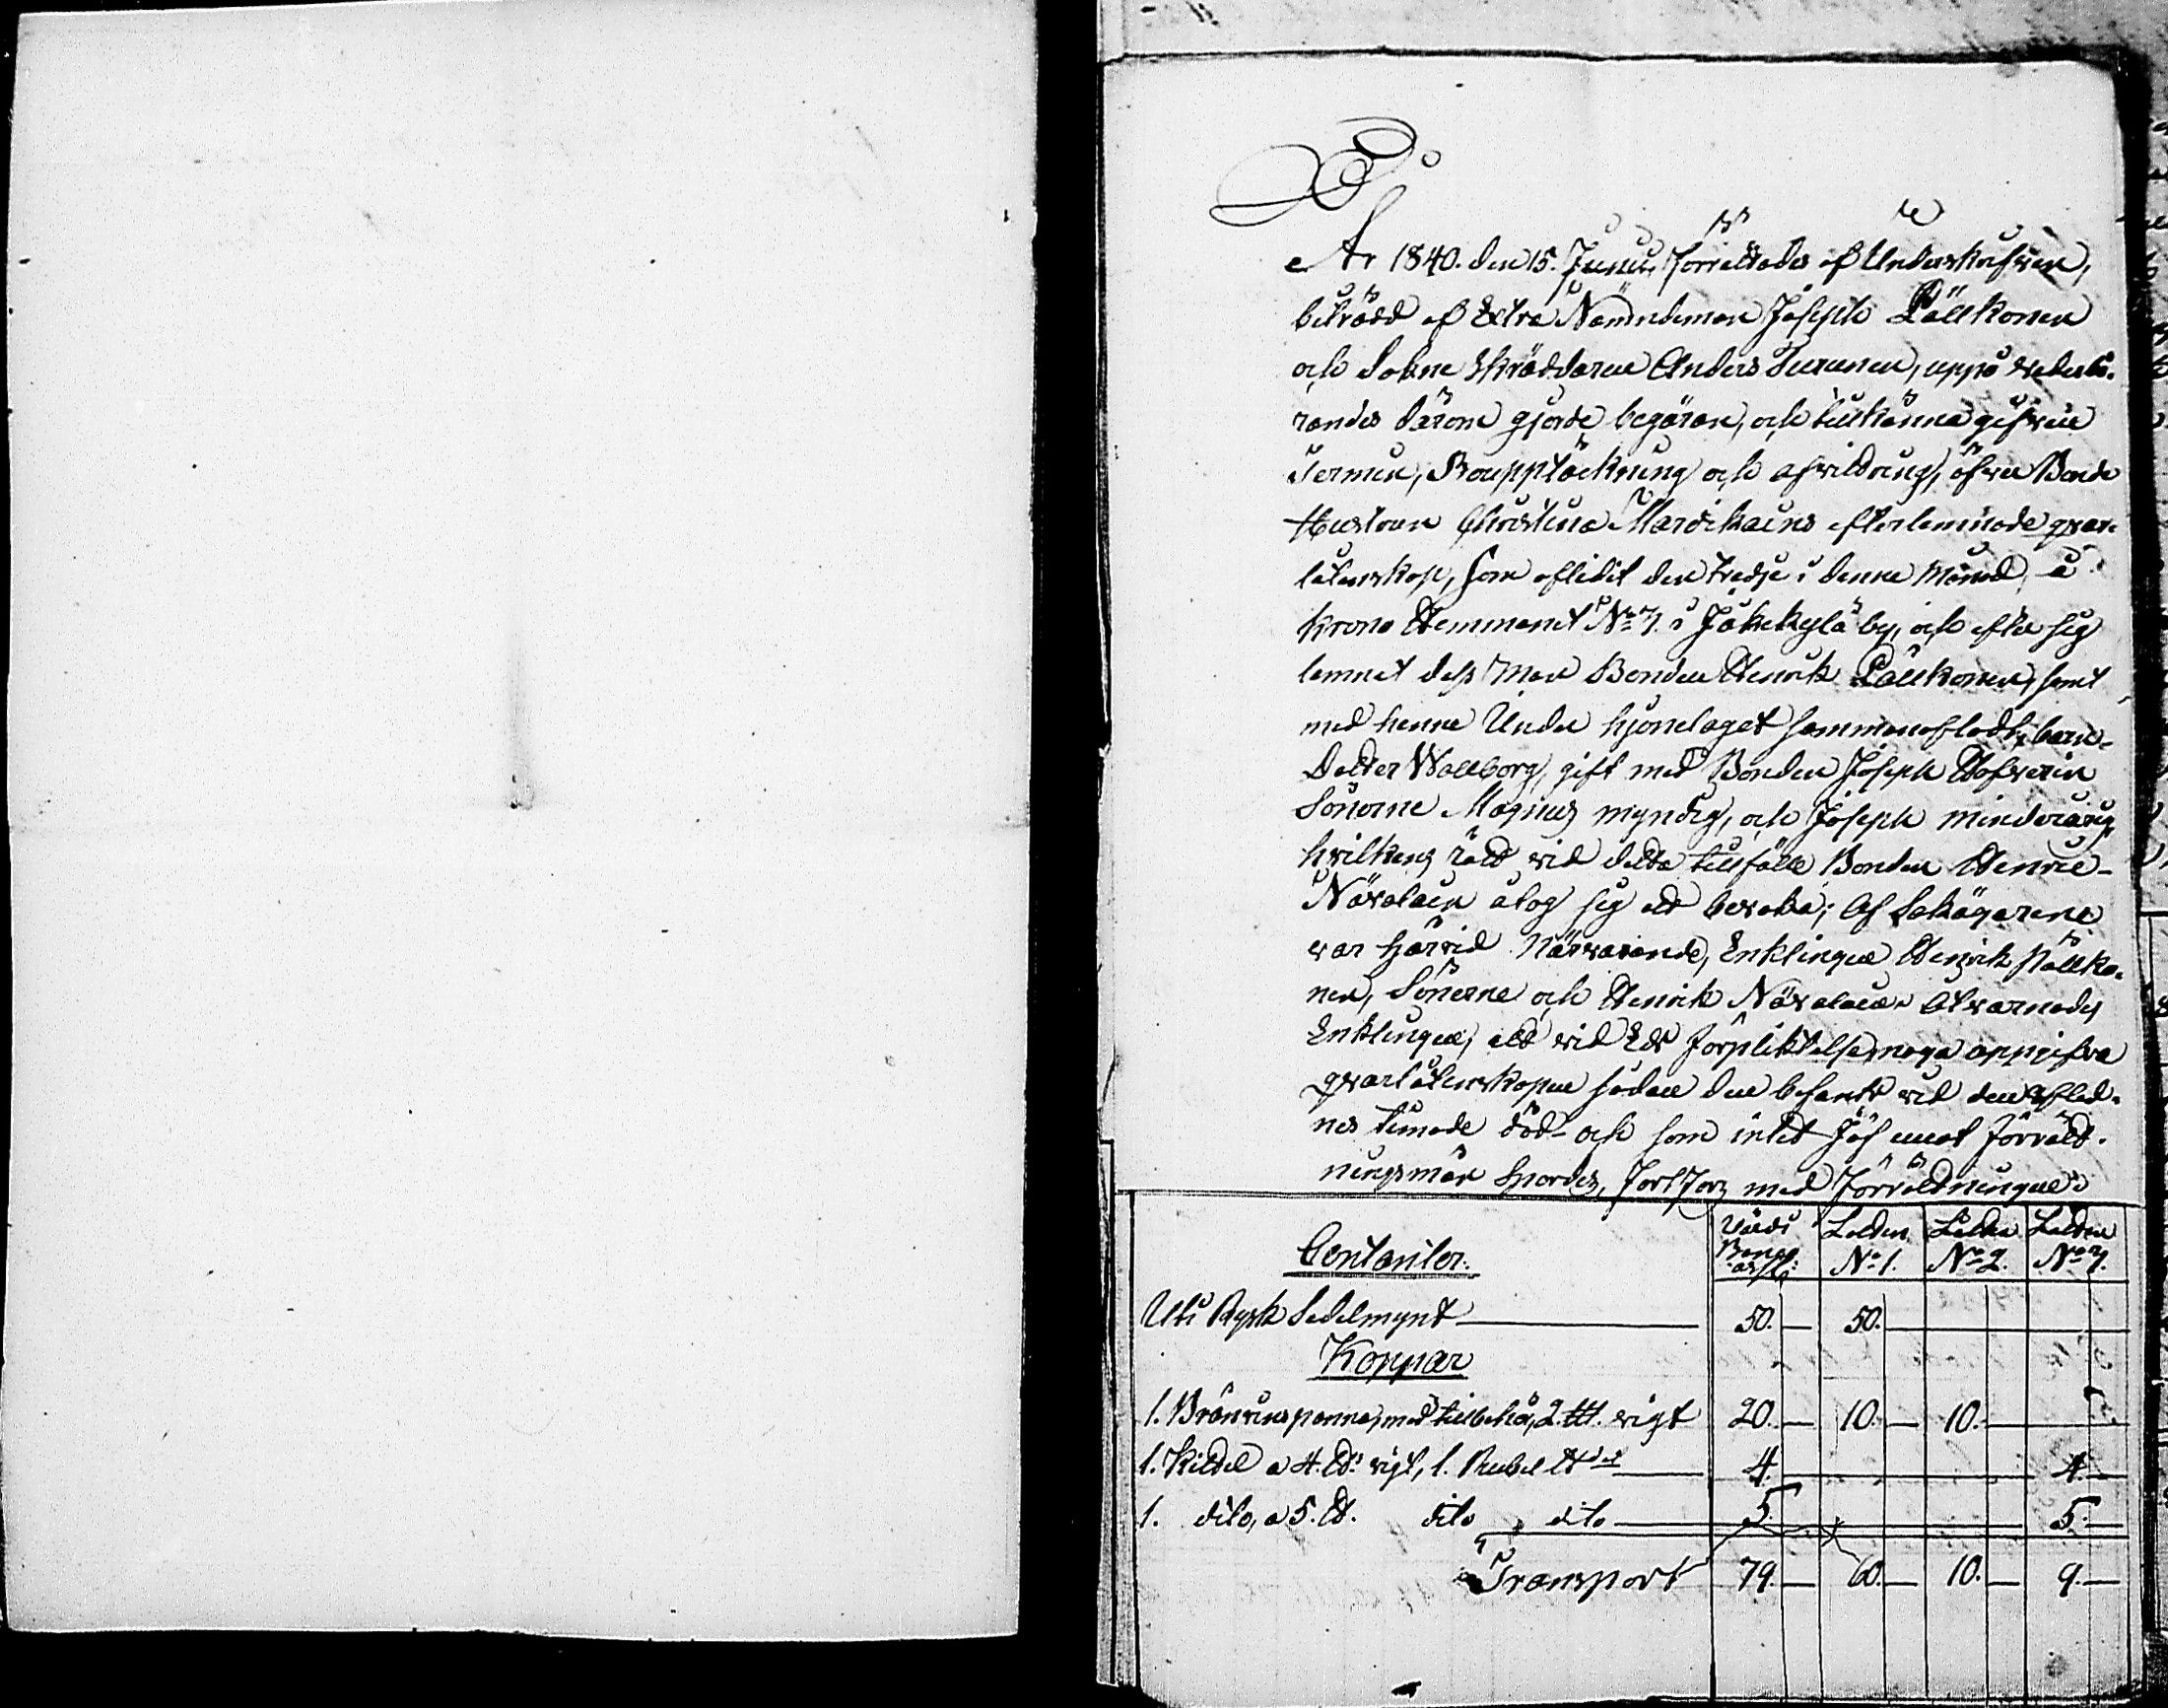 År 1840. den 15. Junii, förrättades af Underskrifven,
biträdd af Extra Nämndeman Joseph Pällkonen
och Sokne Skräddaren Anders Turunen, uppå vederbö-
randes därom gjorde begäran, och tillkänna gifven
Termin, Bouppteckning och afvittring, öfver Bonde
Hustrun Christina Mardikains efterlemnade qvar-
låtenskap, som aflidit den tredje i denne Månad, å
Krono Hemmanet No 7. i Jokikylä by, och efter sig
lemnat dess Man Bonden Henrik Pällkonen, samt
med henne Under hjonelaget sammanaflade barn
Dotter Wallborg, gift med Bonden Joseph
Sönerne Magnus myndig, och Joseph minderårig,
hvilkens rätt vid detta tillfälle Bonden Henric
Näválain åtog sig att bevaka; Af Sakägarene
var härvid närvarande, Enklingen Henrik Pällko-
nen, Sönerne och Henrik Näválain. Åtvarnades
Enklingen, att vid Eds förpliktelse noga uppgifva
qvarlåtenskapen sådan den befants vid den afled-
nes timade död och som intet jäf emot förrätt-
ningsman spordes, fortfors med förrättningen:
Contanter.
Värde Banco ass. Lotten No 1. Lotten No 2. Lotten No 3.
Uti Rysk Sedelmynt 50. — 50. —
Koppar
1. Bränvinspanna, med tillbehör, 2. vigt 20. — 10. — 10. —
1. Kittel a 4. ℔. vigt, 1. Rubel ℔ 4. — 4. —
1. dito, a 5. ℔. dito dito 5. — 5. —
Transport 79. — 60. — 10. — 9. —